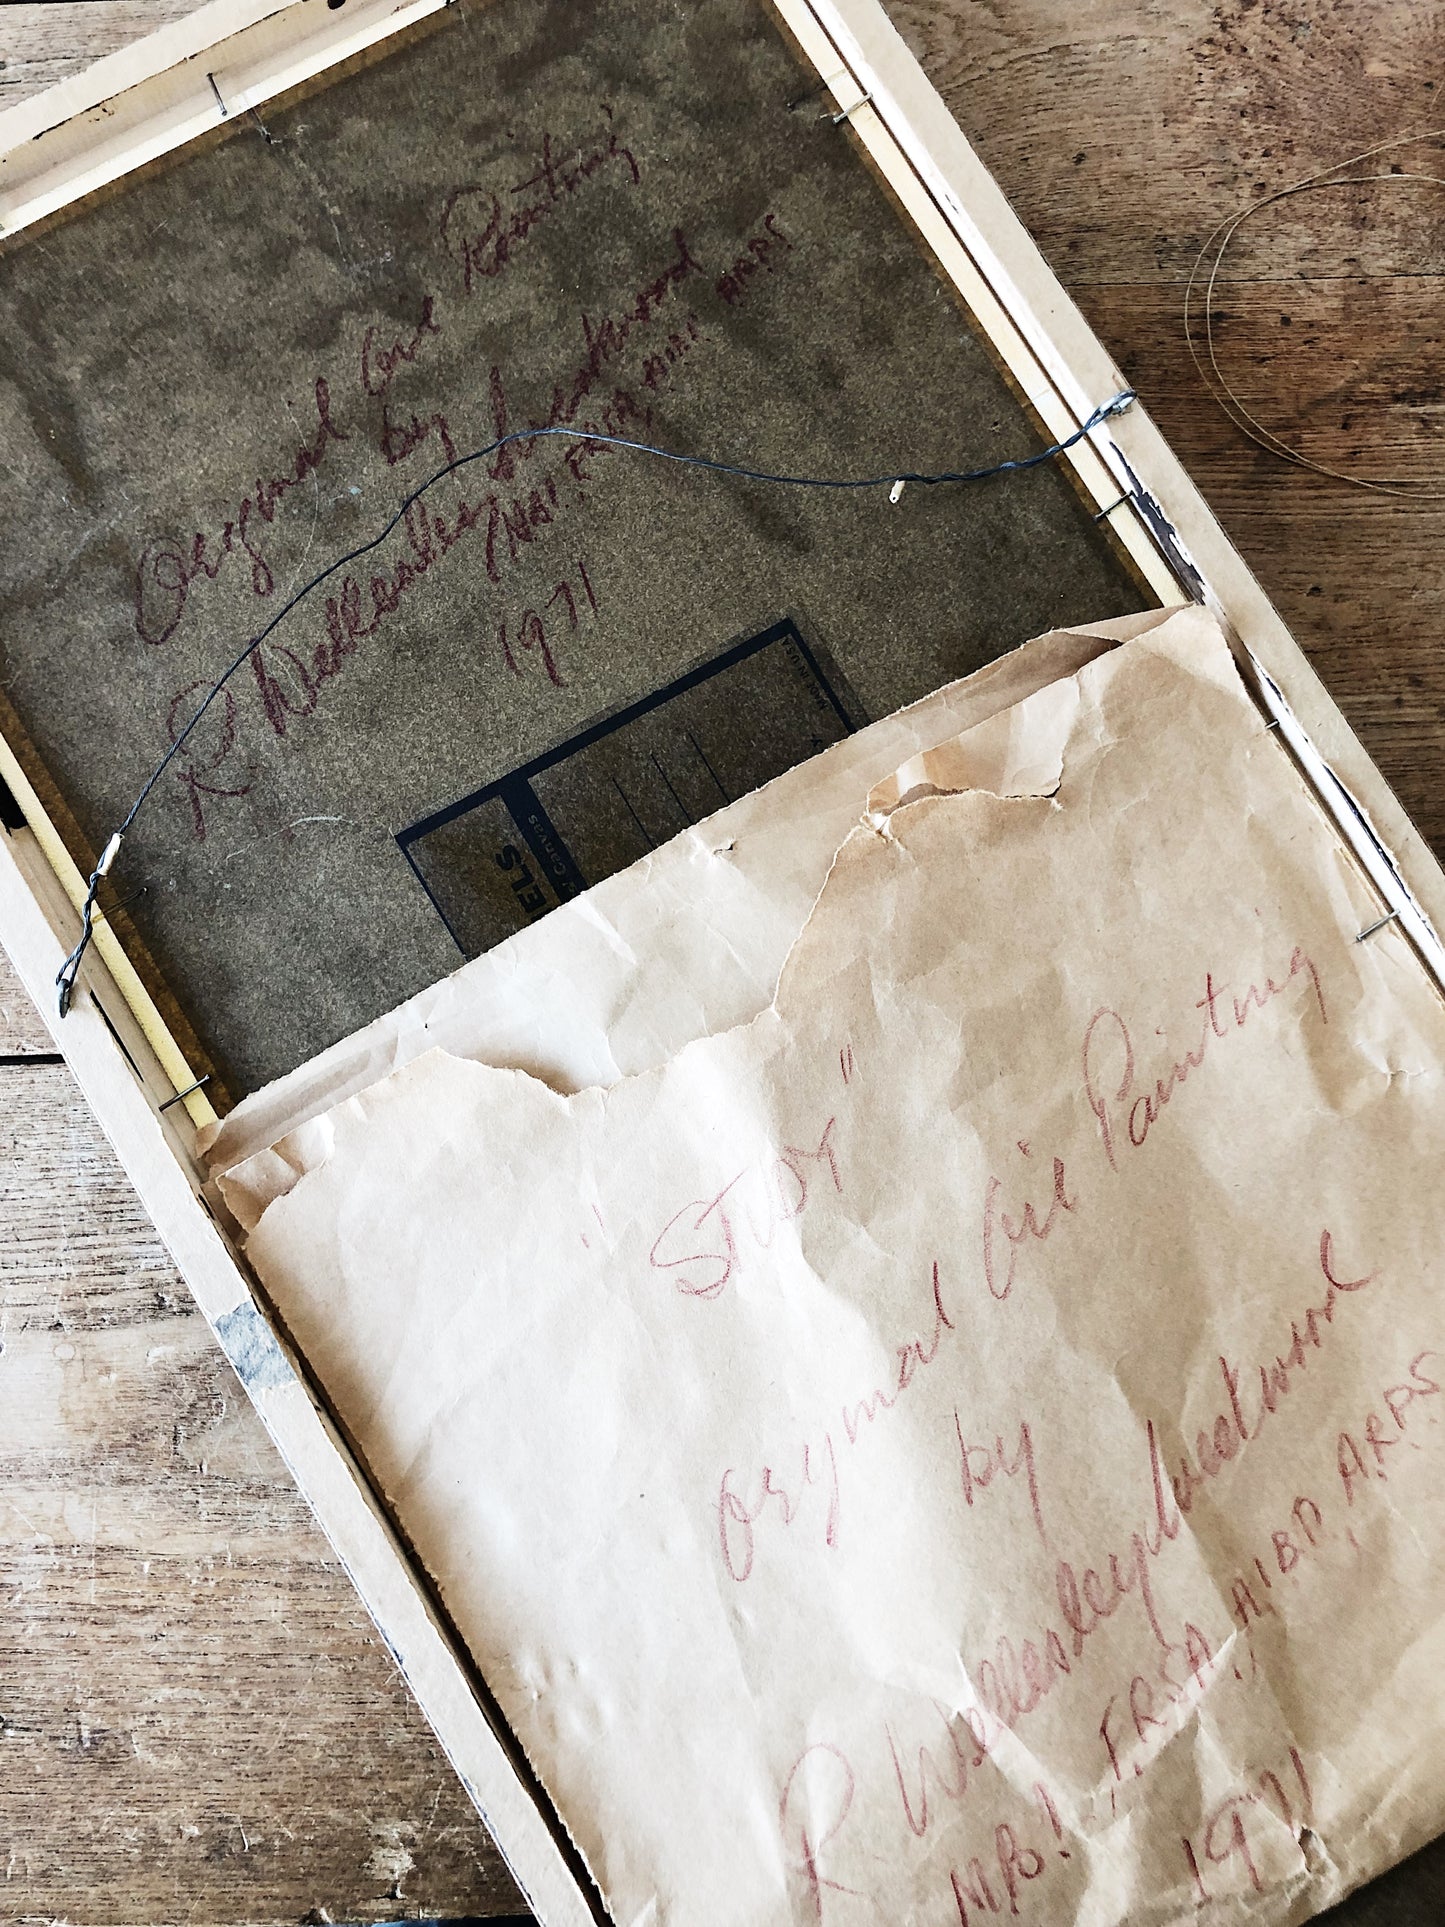 Original Oil Painting
by
R Wellesley Lockwood
FRSA
1971
MADE IN USA
ELS
canvas
"STUDY"
Original Oil Painting
by
R Wellesley Lockwood
F.R.S.A. A.I.B.D. A.R.P.S
1971